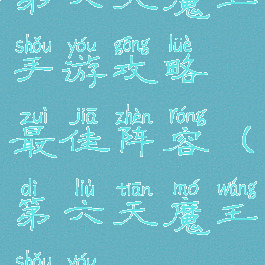 第六天魔王
shǒu yóu gōng lüè
手游攻略
zuì jiā zhèn róng
最佳阵容（
dì liù tiān mó wáng
第六天魔王
shǒu yóu